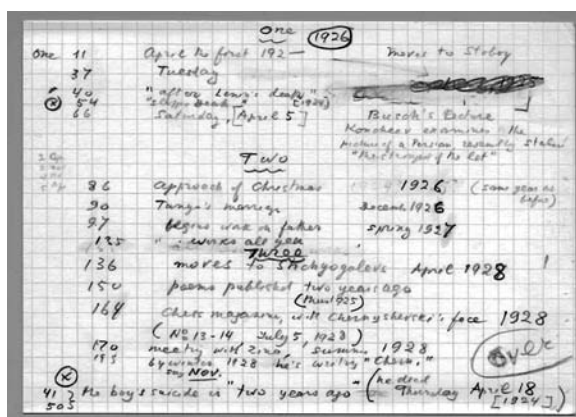 One 1926
One 11 April the first 192— moves to Stoboy
37 Tuesday
40 "after Lenin's death"
54 death" [1924]
66 Saturday, [April 5] Busch's lecture
Koncheev examines the
picture of a Persian, recently stolen
Two
86 approach of Christmas 1926 (same year as before)
90 Tanya's marriage Decemb 1926
97 begins work on father spring 1927
135 " " works all year "
Three
136 moves to Shchyogolevs April 1928
150 poems published two years ago
(thus 1925)
164 Chess magazine, with Chernyshevski's face 1928
(No 13-14 July 5, 1928)
170 meeting with Zina, summer 1928
by winter 1928 he's writing "Chern."
say Nov. Over
41 the boy's suicide is "two years ago" (he died Thursday April 18
50s [1924])